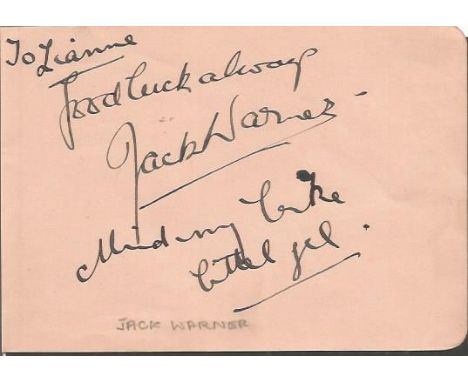 To Lianne
Good luck always
Jack Warner
Mind my bike
little gel.
JACK WARNER